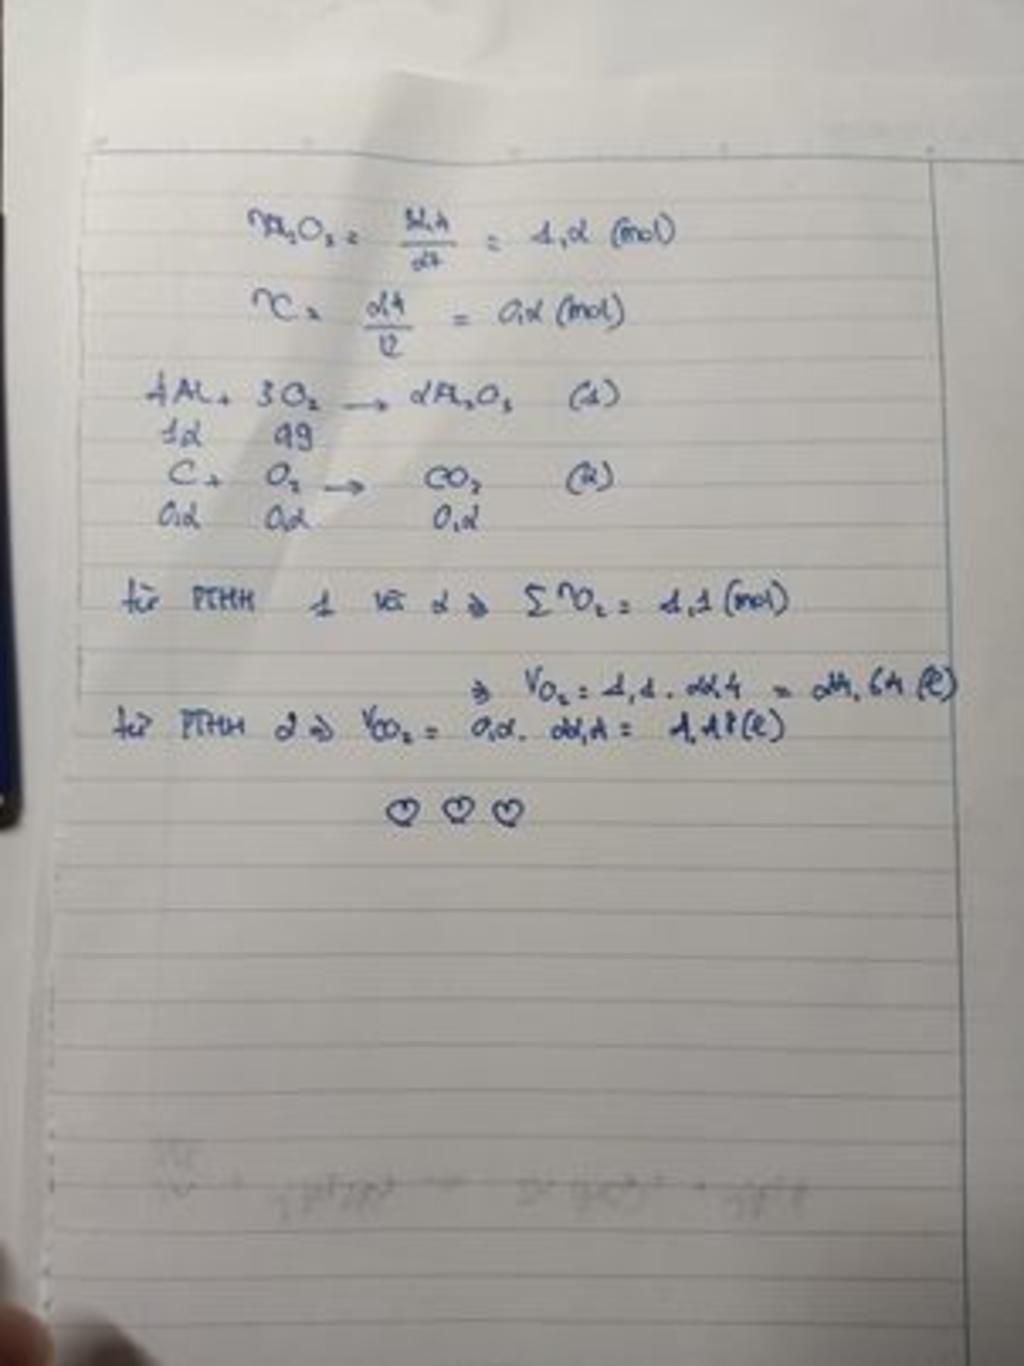 nAl₂O₃ = 32,4/27 = 1,2 (mol)
nC = 2,4/12 = 0,2 (mol)
4Al + 3O₂ → 2Al₂O₃ (1)
1,2 0,9
C + O₂ → CO₂ (2)
0,2 0,2 0,2
từ PTHH 1 và 2 ⇒ ΣnO₂ = 1,1 (mol)
⇒ VO₂ = 1,1 . 22,4 = 24,64 (l)
từ PTHH 2 ⇒ VCO₂ = 0,2 . 22,4 = 4,48 (l)
♡ ♡ ♡